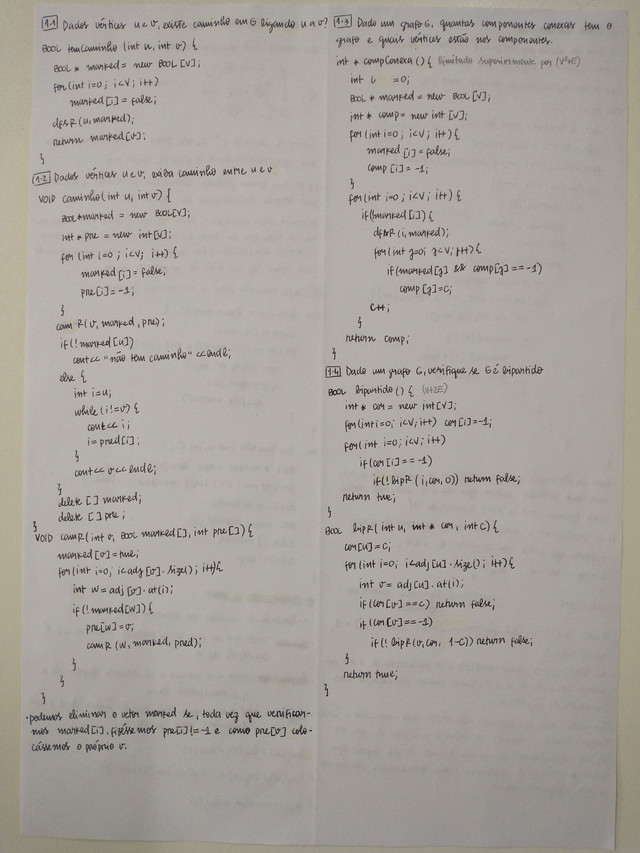 1.1 Dados vértices u e v, existe caminho em G ligando u a v?
BOOL temCaminho (int u, int v) {
BOOL * marked = new BOOL[V];
for(int i=0; i<V; i++)
marked[i]=false;
dfsR(u,marked);
return marked[v];
}
1.2 Dados vértices u e v, exiba caminho entre u e v
VOID caminho(int u, int v) {
BOOL*marked = new BOOL[V];
int * pre = new int[V];
for(int i=0; i<V; i++) {
marked[i]=false;
pre[i]=-1;
}
camR(v, marked, pre);
if(!marked[u])
cout<< "não tem caminho" <<endl;
else {
int i=u;
while(i!=v) {
cout<< i;
i=pred[i];
}
cout<< v<<endl;
}
delete [] marked;
delete [] pre;
}
VOID camR(int v, BOOL marked[], int pre[]) {
marked[v]=true;
for(int i=0; i<adj[v].size(); i++){
int w=adj[v].at(i);
if(!marked[w]) {
pre[w]=v;
camR(w, marked, pred);
}
}
}
•podemos eliminar o vetor marked se, toda vez que verificar-
mos marked[i], fizéssemos pre[i]!=-1 e como pre[v] colo-
cássemos o próprio v.
1.3 Dado um grafo G, quantas componentes conexas tem o
grafo e quais vértices estão nas componentes.
int * compConexa() { limitado superiormente por (V²+E)
int c =0;
BOOL * marked = new BOOL[V];
int * comp = new int[V];
for(int i=0; i<V; i++){
marked[i]=false;
comp[i]=-1;
}
for(int i=0; i<V; i++) {
if(!marked[i]) {
dfsR(i, marked);
for(int j=0; j<V; j++){
if(marked[j] && comp[j]==-1)
comp[j]=c;
c++;
}
return comp;
}
1.4 Dado um grafo G, verifique se G é bipartido
BOOL bipartido() { (V+2E)
int * cor = new int[V];
for(int i=0; i<V; i++) cor[i]=-1;
for(int i=0; i<V; i++)
if(cor[i]==-1)
if(!bipR(i,cor,0)) return false;
return true;
}
BOOL bipR(int u, int * cor, int c) {
cor[u]=c;
for(int i=0; i<adj[u].size(); i++){
int v=adj[u].at(i);
if(cor[v]==c) return false;
if(cor[v]==-1)
if(!bipR(v,cor, 1-c)) return false;
}
return true;
}